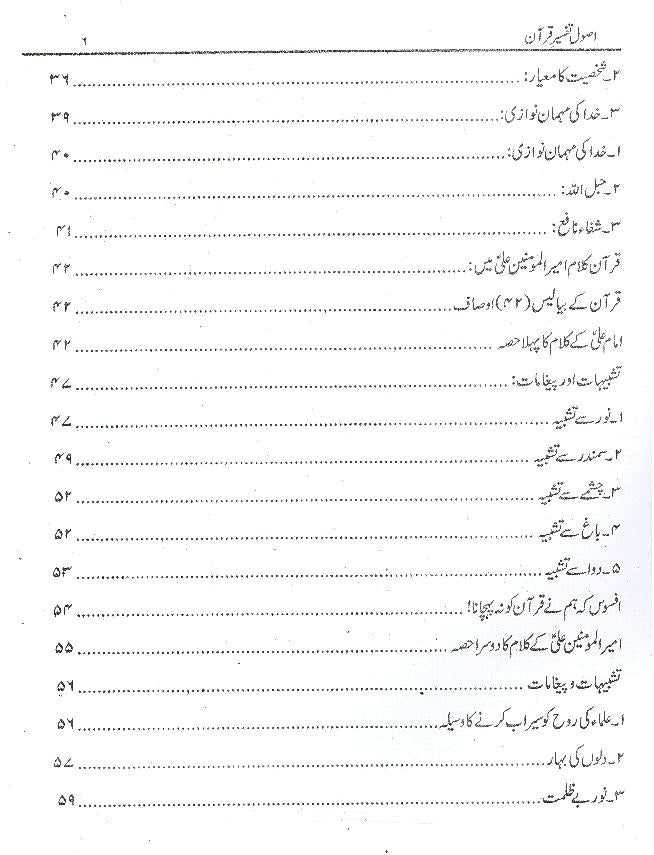 اصول تفسیر قرآن ۶
۲۔شخصیت کا معیار: ۳۶
۳۔خدا کی مہمان نوازی: ۳۹
۱۔خدا کی مہمان نوازی: ۴۰
۲۔حبل اللہ: ۴۰
۳۔شفاء نافع: ۴۱
قرآن کلام امیر المومنین علیؑ میں: ۴۲
قرآن کے بیالیس (۴۲) اوصاف ۴۲
امام علیؑ کے کلام کا پہلا حصہ ۴۲
تشبیہات اور پیغامات: ۴۷
۱۔نور سے تشبیہ ۴۷
۲۔سمندر سے تشبیہ ۴۹
۳۔چشمے سے تشبیہ ۵۲
۴۔باغ سے تشبیہ ۵۲
۵۔دوا سے تشبیہ ۵۳
افسوس کہ ہم نے قرآن کو نہ پہچانا! ۵۴
امیر المومنین علیؑ کے کلام کا دوسرا حصہ ۵۵
تشبیہات و پیغامات ۵۶
۱۔علماء کی روح کو سیراب کرنے کا وسیلہ ۵۶
۲۔دلوں کی بہار ۵۷
۳۔نور بے ظلمت ۵۹